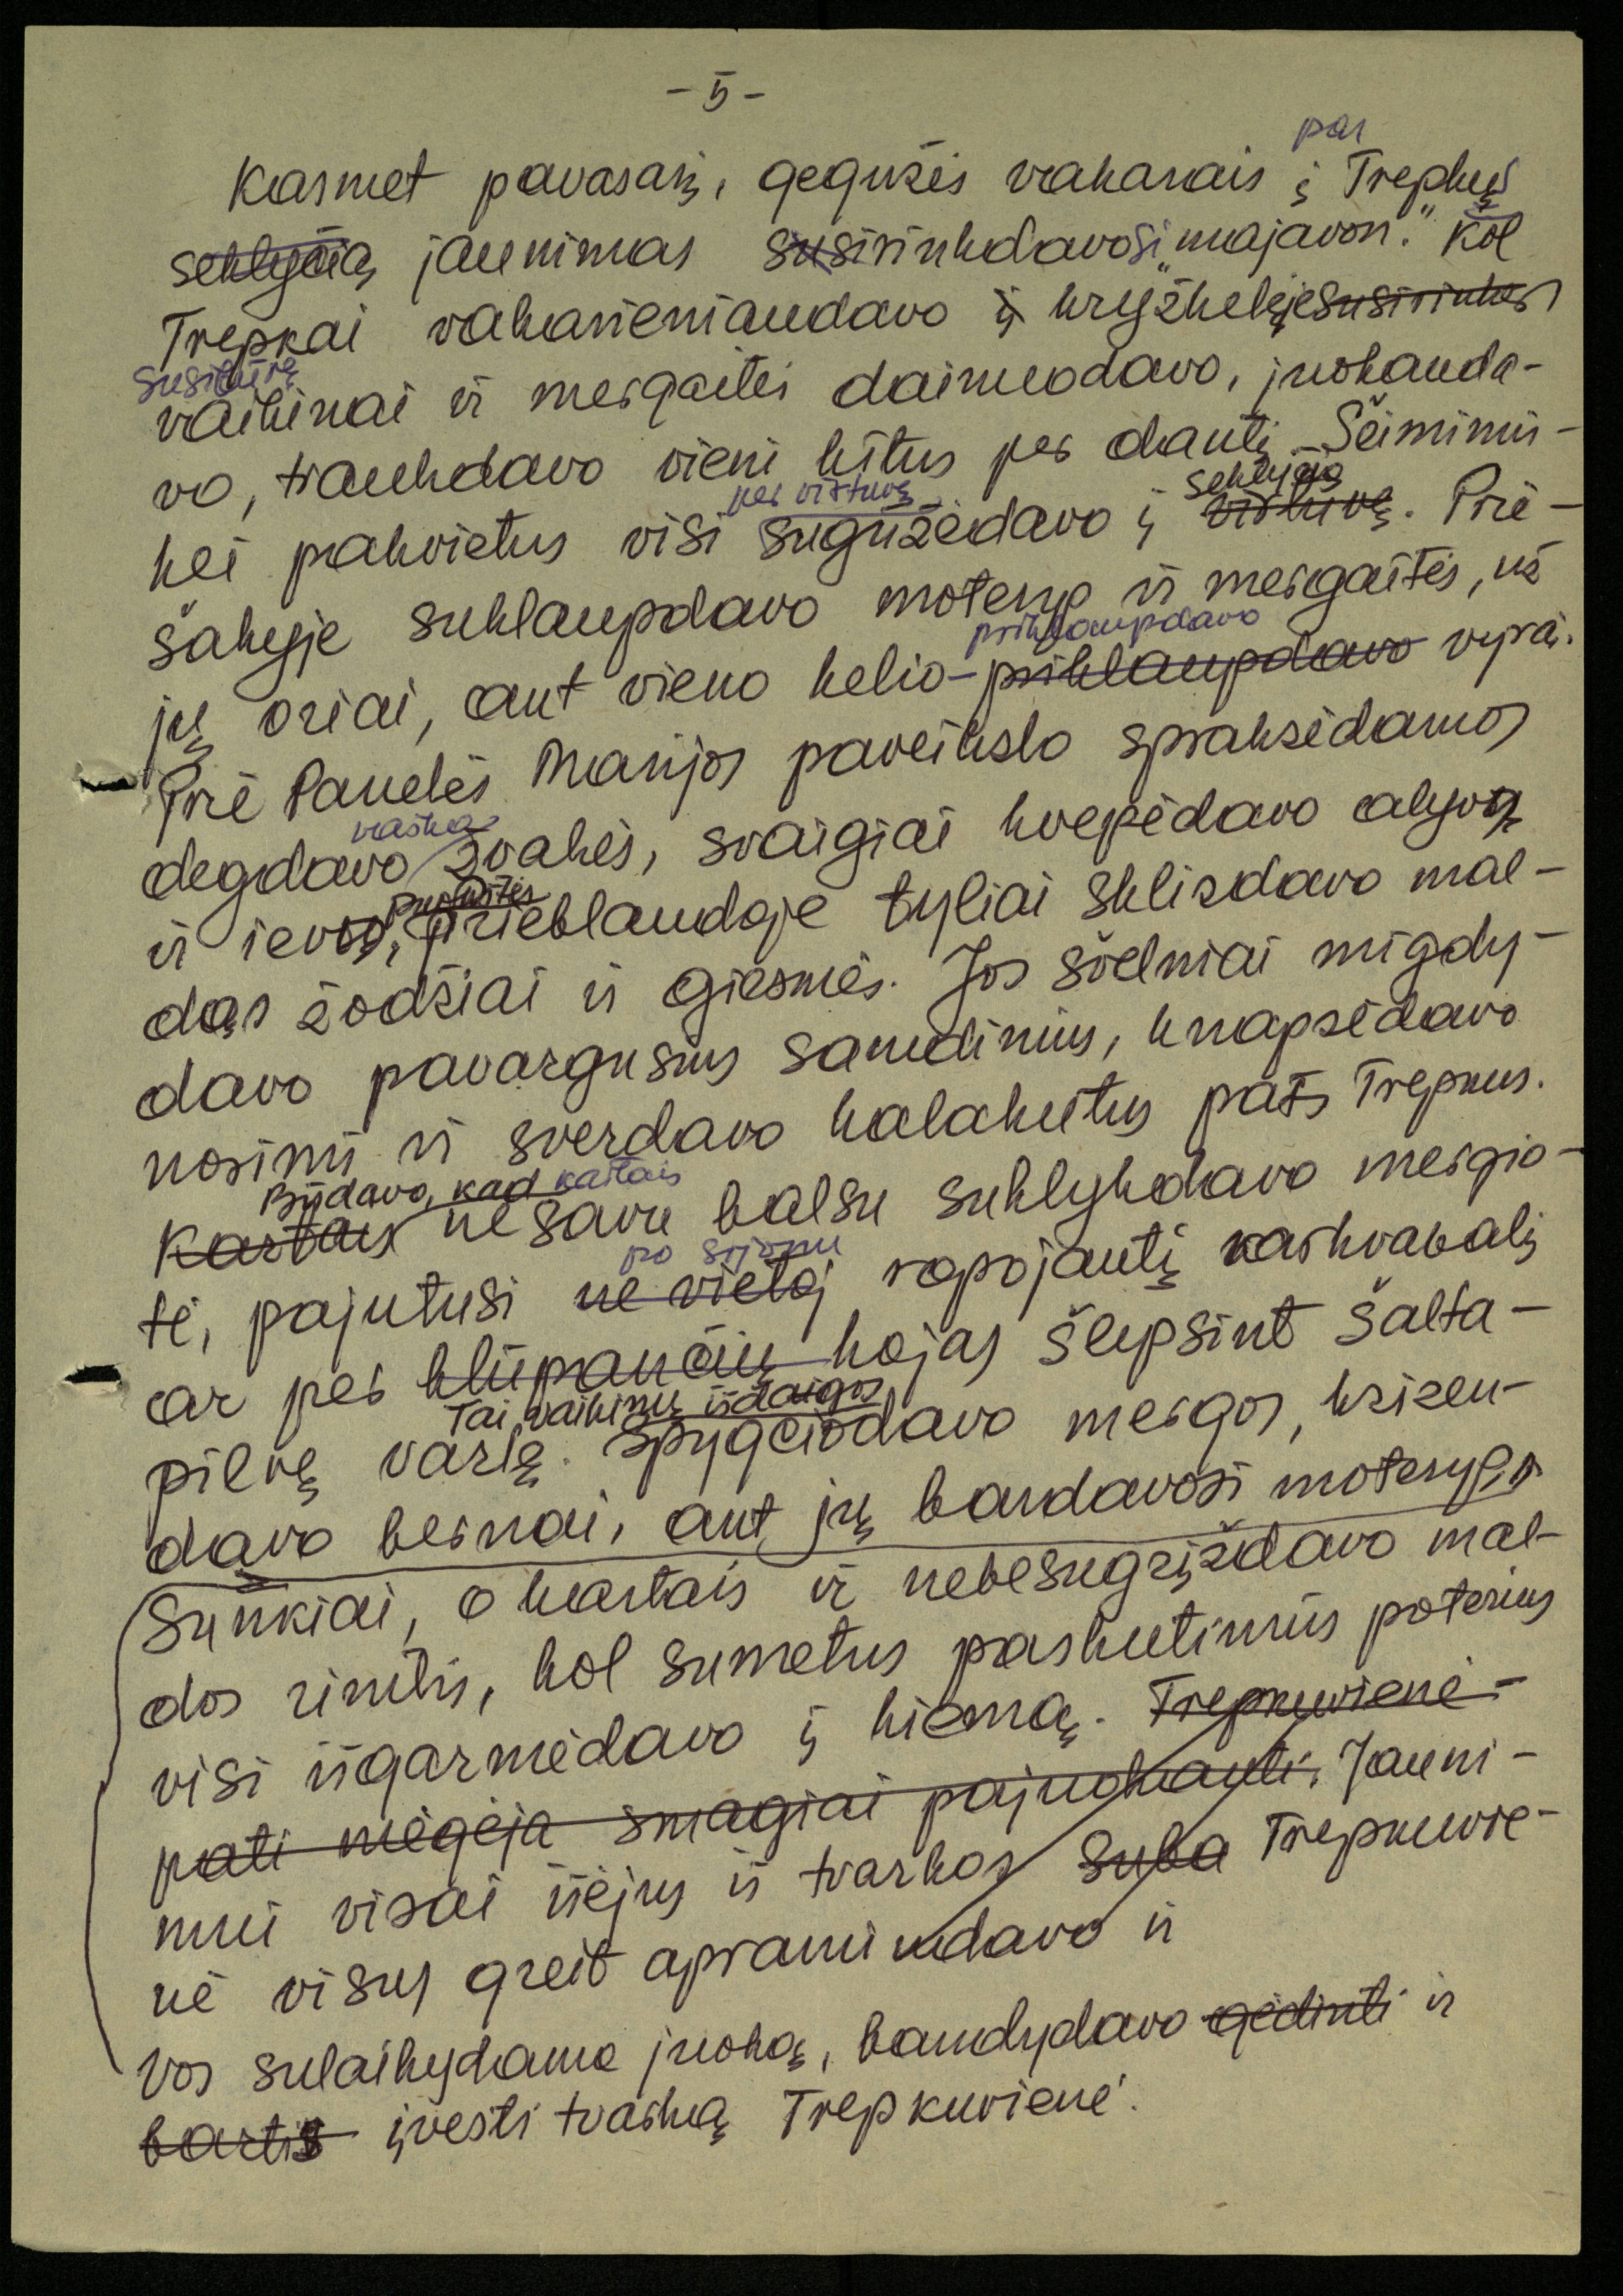 - 5 -
par
Kasmet pavasarį, gegužės vakarais į Trepkų
seklyčią jaunimas susirinkdavosi „majavon." Kol
Trepkai vakarieniaudavo į kryžkelėje susirinkę
susibūrę
vaikinai ir mergaitės dainuodavo, juokauda-
vo, traukdavo vieni kitus per dantį. Šeiminin-
per virtuvę seklyčią
kei pakvietus visi sugūžėdavo į virtuvę. Prie-
šakyje suklaupdavo moterys ir mergaitės, už
priklaupdavo
jų oriai, ant vieno kelio - priklaupdavo vyrai.
Prie Panelės Marijos paveikslo spraksėdamos
vaško
degdavo žvakės, svaigiai kvepėdavo alyvų
puokštės
ir ievų, prieblandoje tyliai sklisdavo mal-
dos žodžiai ir giesmės. Jos švelniai migdy-
davo pavargusius samdinius, knapsėdavo
nosimi ir sverdavo kalakutus pats Trepkus.
Būdavo, kad kartais
Kartais ne savu balsu suklykdavo mergio-
po sijonu
tė, pajutusi ne vietoj ropojantį karkvabalį
ar per klūpančių kojas šlepsint šalta-
Tai vaikinų išdaigos
pilvę varlę. Spygčiodavo mergos, krizen-
davo bernai, ant jų bardavosi moterys.
Sunkiai, o kartais ir nebesugrįždavo mal-
dos rimtis, kol sumetus paskutinius poterius
visi išgarmėdavo į kiemą. Trepkuvienė -
pati mėgėja smagiai pajuokauti. Jauni-
mui visai išėjus iš tvarkos suba Trepkuvie-
nė visus greit apramindavo ir
vos sulaikydama juoką, bandydavo gėdinti ir
bartis įvesti tvarką Trepkuvienė.